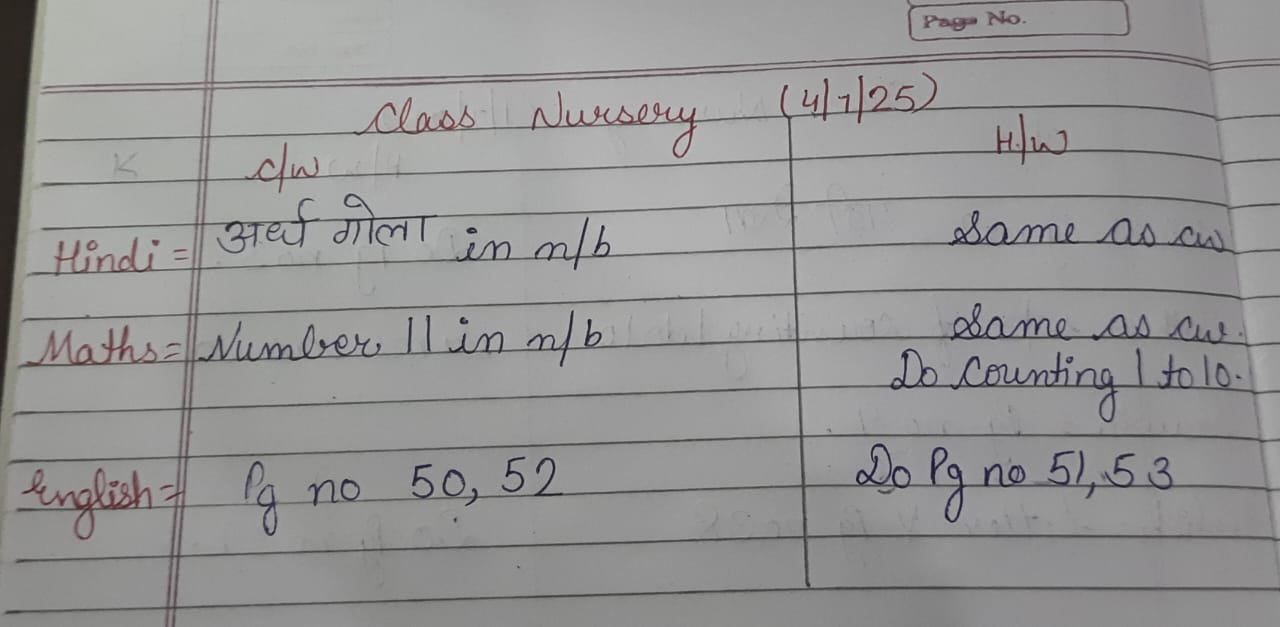 Page No.
Class Nursery (4/7/25)
C/W H/W
Hindi = अर्ध गोला in n/b Same as cw
Maths = Number 11 in n/b Same as cw.
Do Counting 1 to 10.
English = Pg no 50, 52 Do Pg no 51, 53